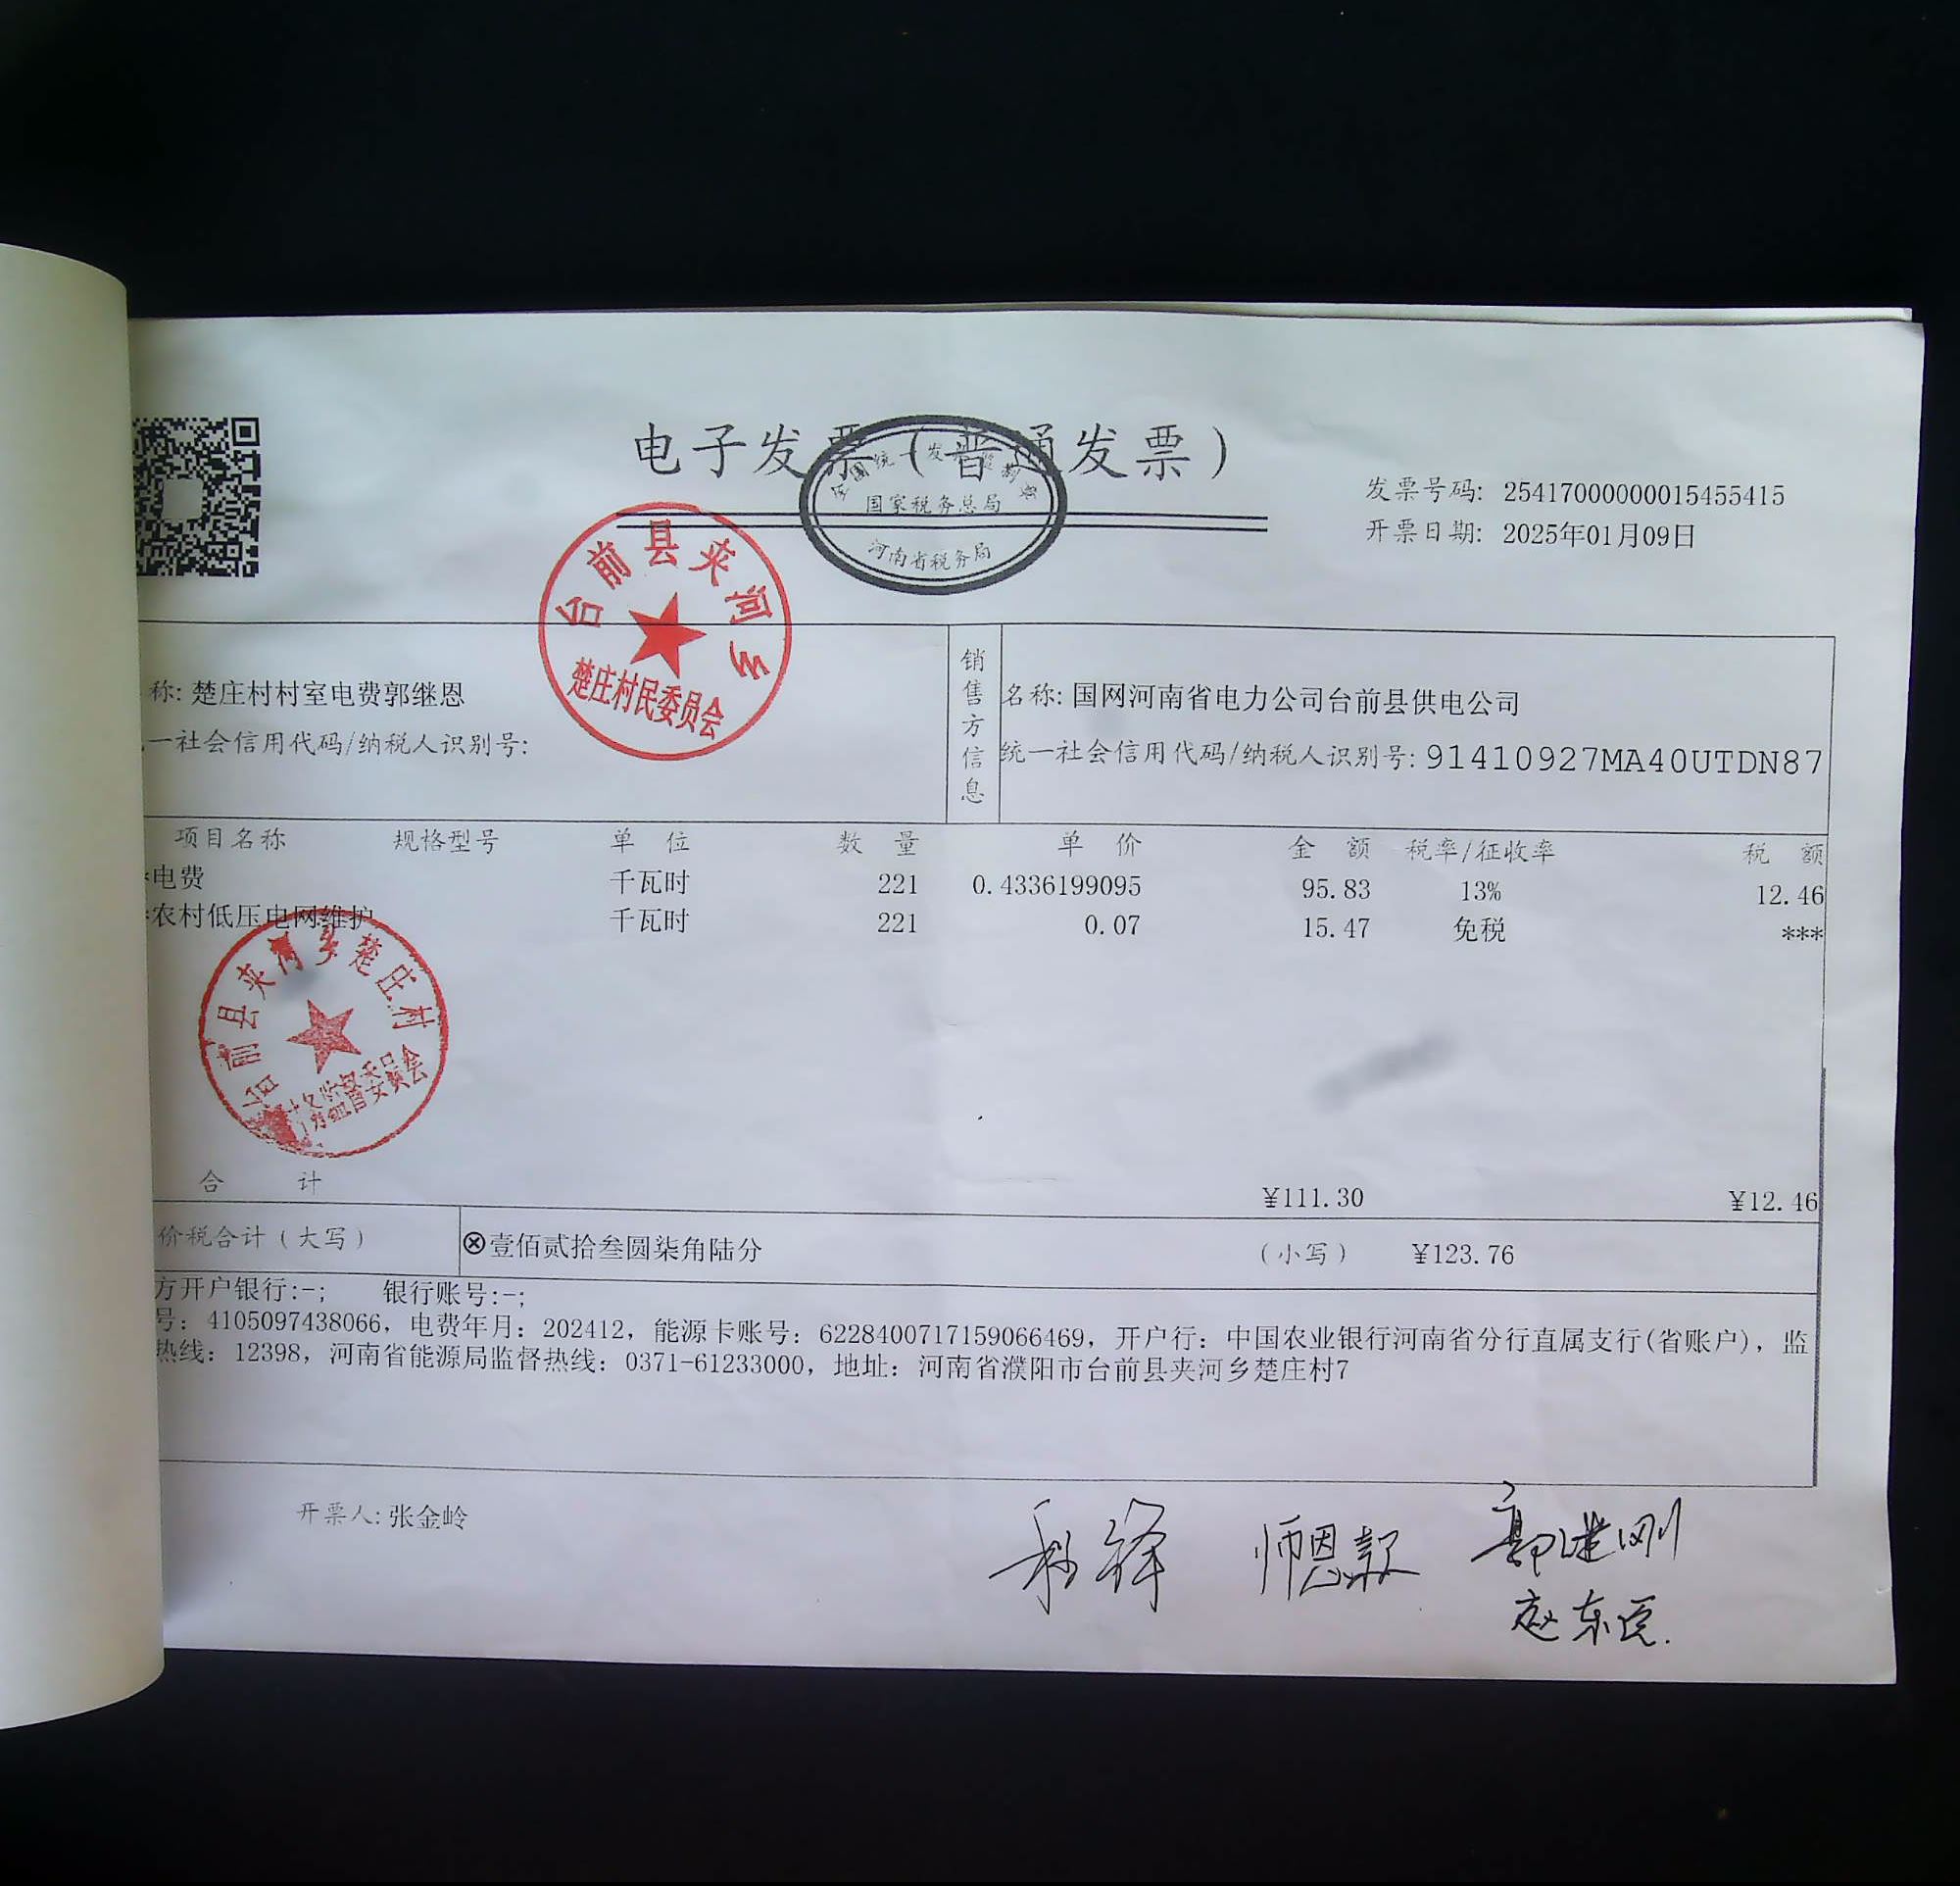 电子发票（普通发票）
国家税务总局
河南省税务局
发票号码: 25417000000015455415
开票日期: 2025年01月09日
台前县夹河乡
楚庄村民委员会
称: 楚庄村村室电费郭继恩
一社会信用代码/纳税人识别号:
销售方信息
名称: 国网河南省电力公司台前县供电公司
统一社会信用代码/纳税人识别号: 91410927MA40UTDN87
项目名称 规格型号 单位 数量 单价 金额 税率/征收率 税额
*电费 千瓦时 221 0.4336199095 95.83 13% 12.46
*农村低压电网维护 千瓦时 221 0.07 15.47 免税 ***
台前县夹河乡楚庄村
合计 ¥111.30 ¥12.46
价税合计（大写） ⊗壹佰贰拾叁圆柒角陆分 （小写） ¥123.76
方开户银行:-; 银行账号:-;
号: 4105097438066, 电费年月: 202412, 能源卡账号: 6228400717159066469, 开户行: 中国农业银行河南省分行直属支行(省账户), 监
热线: 12398, 河南省能源局监督热线: 0371-61233000, 地址: 河南省濮阳市台前县夹河乡楚庄村7
开票人: 张金岭